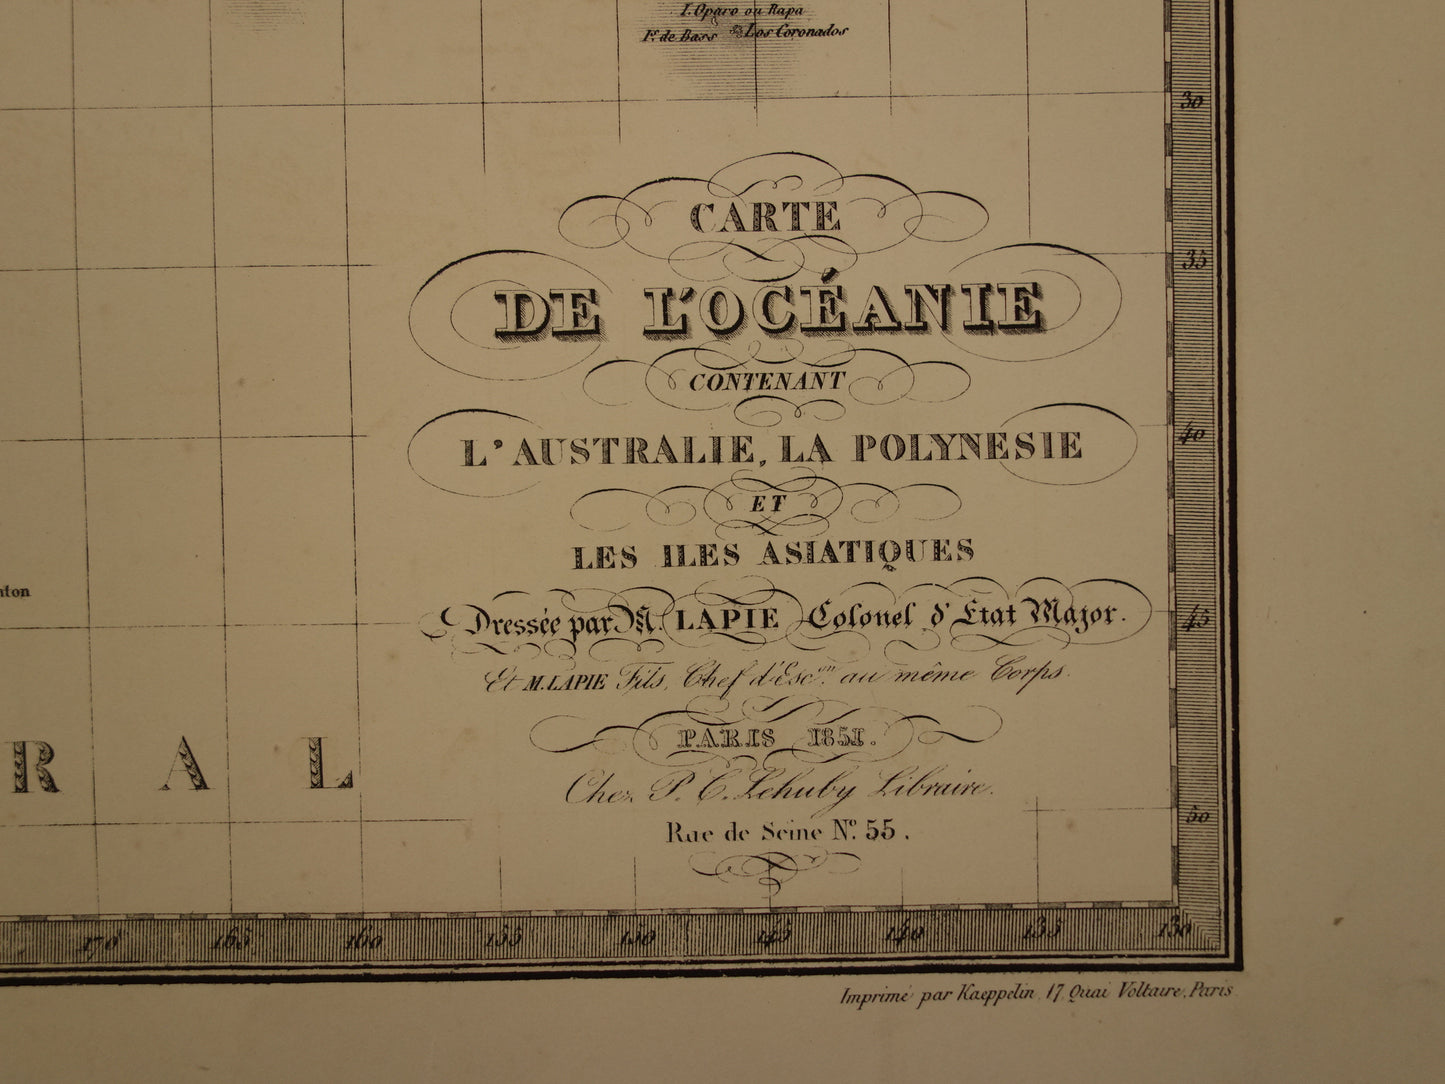 I. Oparo ou Rapa
Is. de Bass Los Coronados
30
CARTE
35
DE L'OCÉANIE
CONTENANT
40
L'AUSTRALIE, LA POLYNESIE
ET
LES ILES ASIATIQUES
nton
45
Dressée par M. LAPIE Colonel d'Etat Major.
Et M. LAPIE Fils, Chef d'Esc.on au même Corps.
PARIS 1851.
R A L
Chez P. C. Lehuby Libraire.
50
Rue de Seine No. 55.
170 165 160 155 150 145 140 135 130
Imprimé par Kaeppelin, 17, Quai Voltaire, Paris